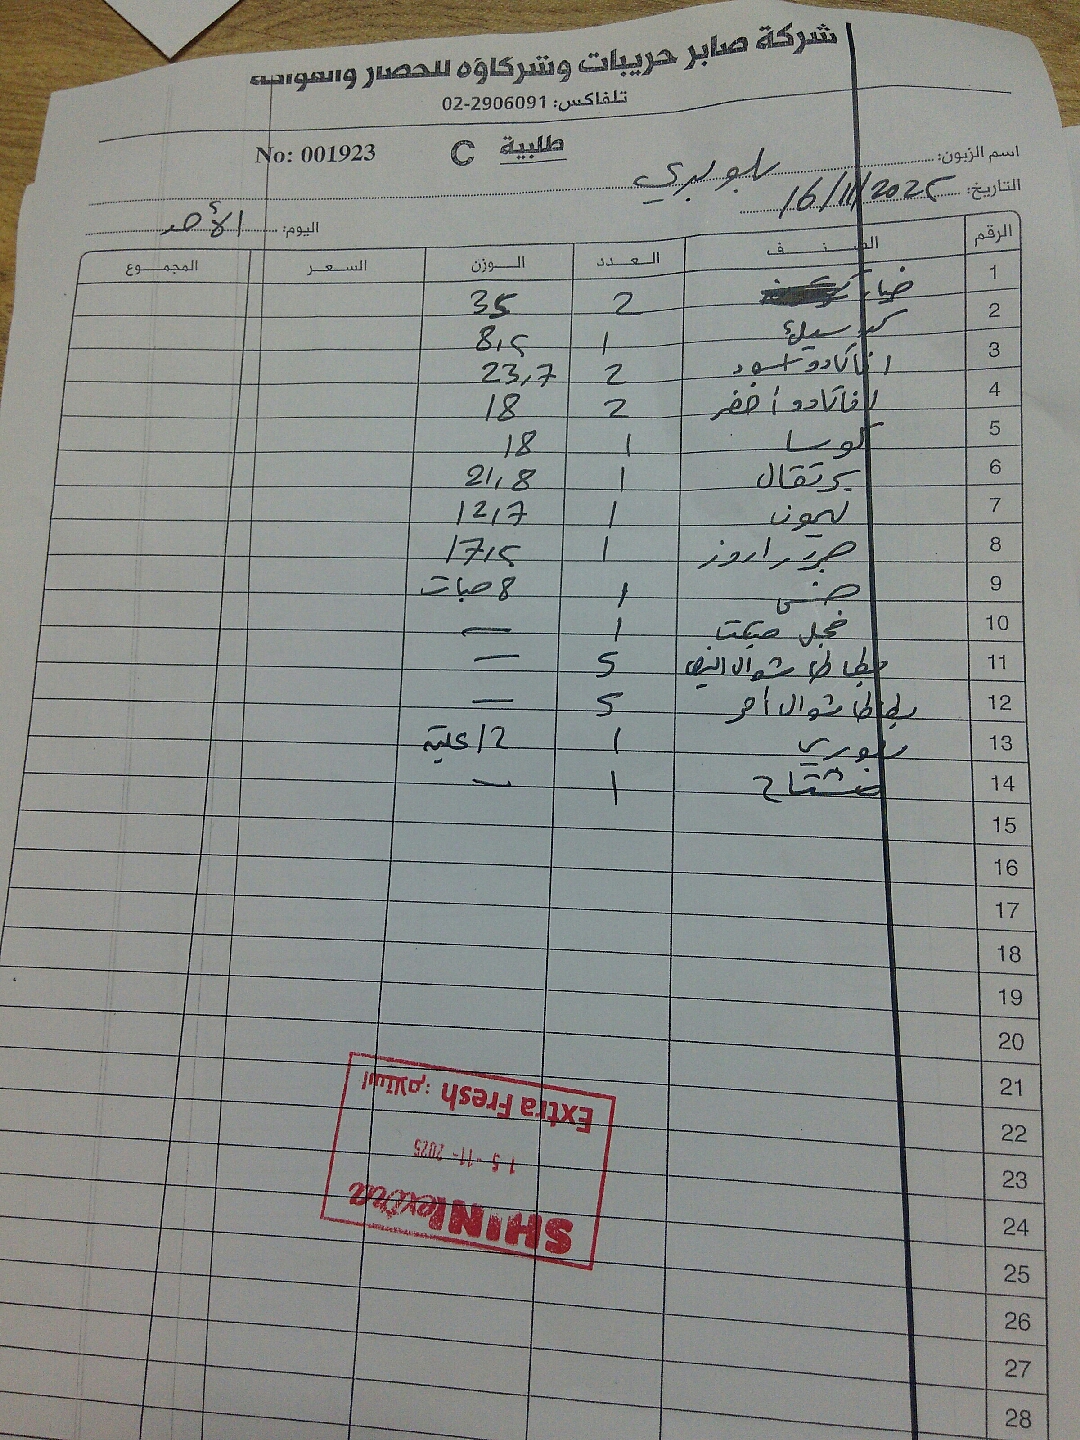 شركة صابر حريبات وشركاؤه للخضار والفواكه
تلفاكس: 02-2906091
طلبية C No: 001923
اسم الزبون:
التاريخ: 16/11/2025
اليوم: الأحد
الرقم الصنف العدد الوزن السعر المجموع
1 خيار 2 35
2 1 8,5
3 افاكادو اسود 2 23,7
4 افاكادو أخضر 2 18
5 كوسا 1 18
6 برتقال 1 21,8
7 ليمون 1 12,7
8 جزر 1 17,5
9 خس 1 8 حبات
10 فجل 1 —
11 بطاطا شوال 5 —
12 بطاطا شوال أحمر 5 —
13 1 12 علبة
14 1 —
15
16
17
18
19
20
21
22
23
24
25
26
27
28
SHINI extra
15-11-2025
Extra Fresh استلام: